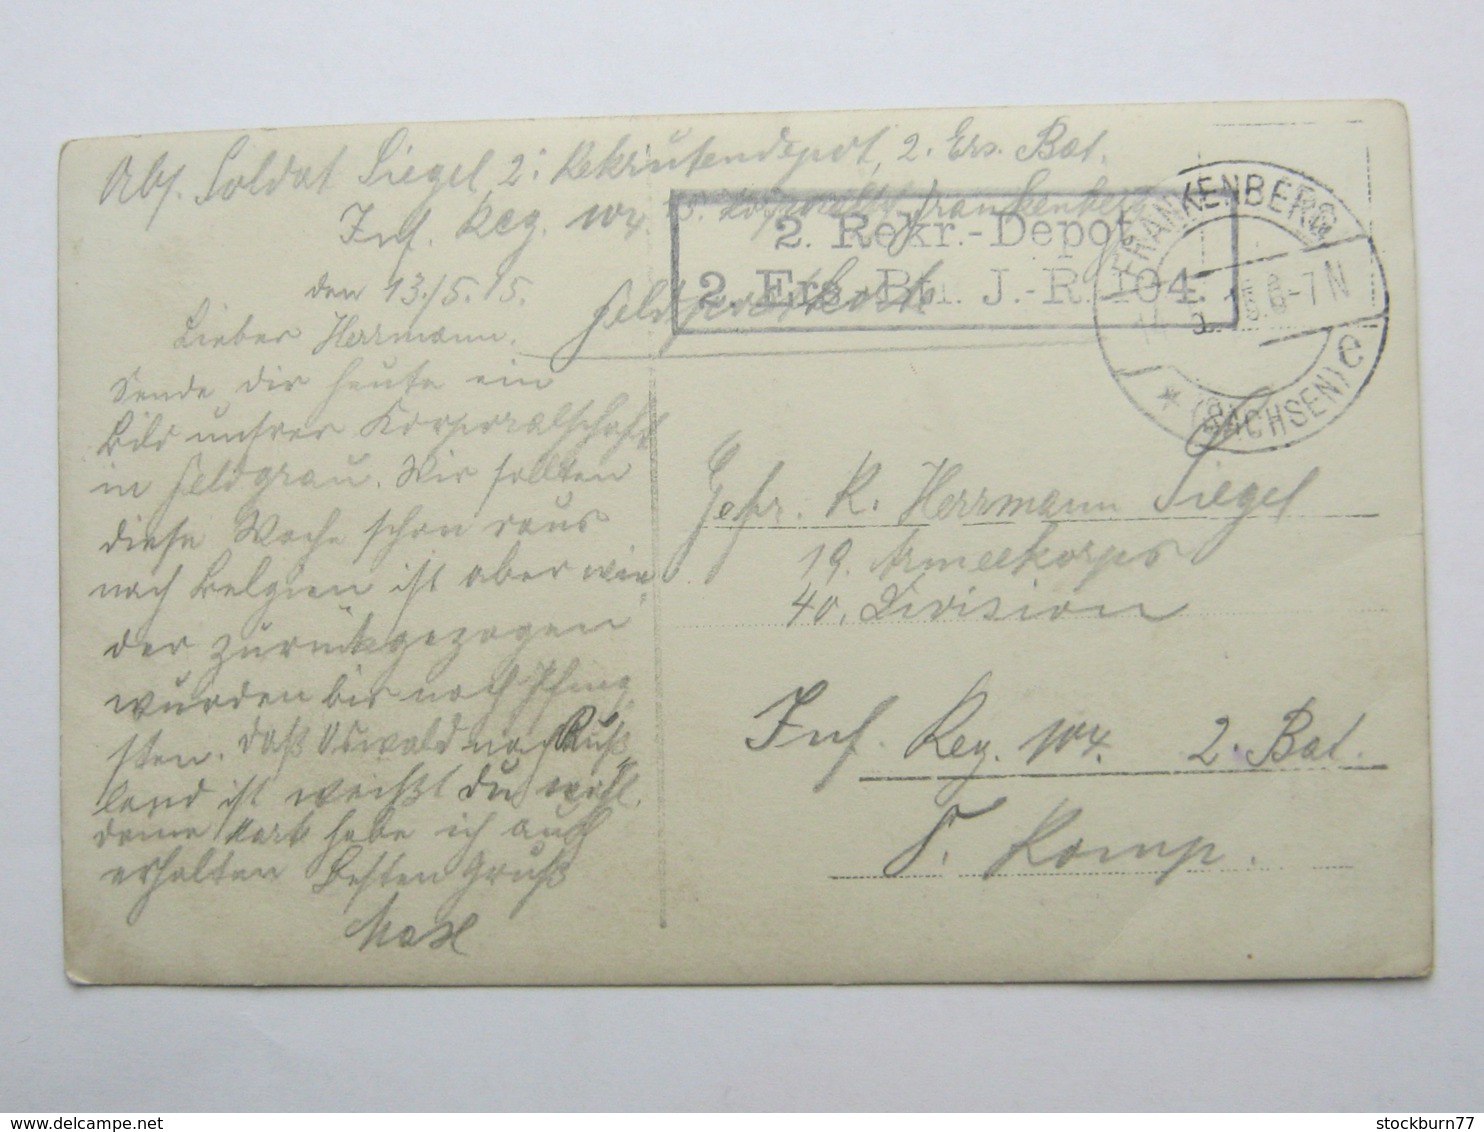 Abs. Soldat Siegel 2. Rekrutendepot, 2. Ers. Bat.
Inf. Reg. 104. 15. Korporalsch. Frankenberg
2. Rekr.-Depot
2. Ers.-Btl. J.-R. 104.
FRANKENBERG
(SACHSEN) e
6-7N
den 13./5.15.
Feldpostkarte
Lieber Herrmann.
Sende dir heute ein
Bild unsrer Korporalschaft
in Feldgrau. Wir sollten
diese Woche schon raus
nach Belgien ist aber wie-
der zurückgezogen
wurden bis nach Pfing
sten. daß Oswald nach Ruß
land ist weißt du wohl.
deine Mark habe ich auch
erhalten Besten Gruß
Max
Gefr. R. Herrmann Siegel
19. Armeekorps
40. Division
Inf. Reg. 104. 2. Bat.
Komp.
stockburn77